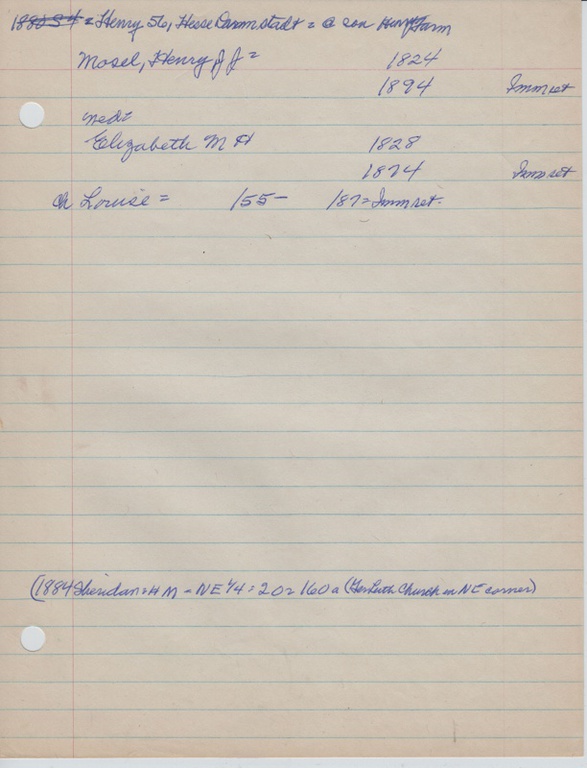 1880 S4 = Henry 56, Hesse Darmstadt = @ son Henry Farm
Mosel, Henry J J = 1824
1894 Imm ret
med =
Elizabeth M H 1828
1874 Imm ret
Ch Louise = 155 - 187 = Imm ret.
(1884 Sheridan = H M - NE 1/4 = 20 = 160 a (Ger Luth Church in NE corner)